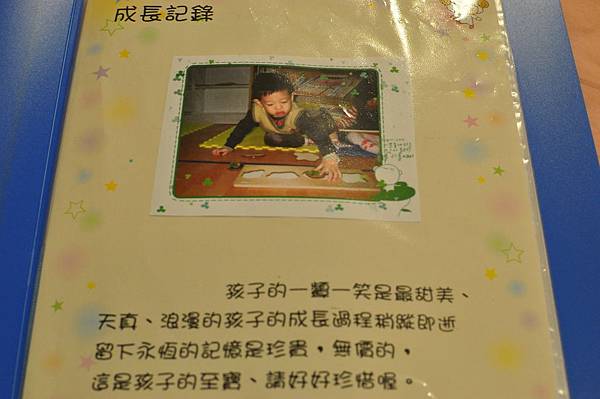 成長記錄
孩子的一顰一笑是最甜美、
天真、浪漫的孩子的成長過程稍蹤即逝
留下永恆的記憶是珍貴，無價的，
這是孩子的至寶、請好好珍惜喔。